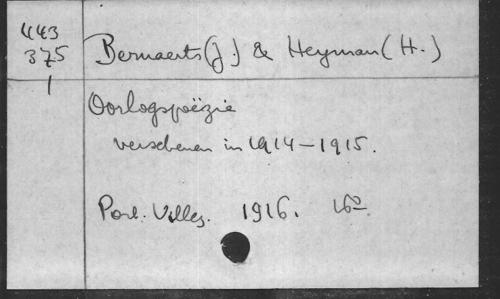 443
375
1
Bernaerts (J) & Heyman (H.)
Oorlogspoëzie
verschenen in 1914-1915.
Port. Villez. 1916. 16°.